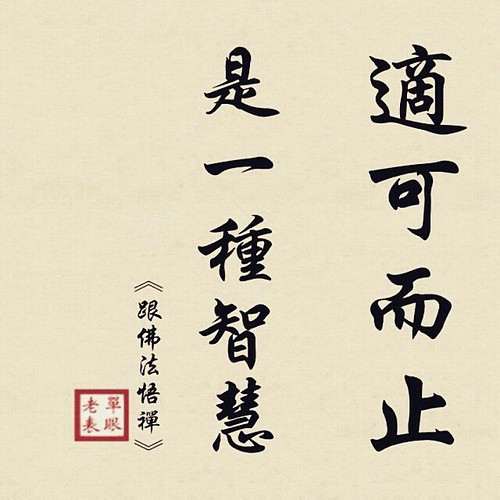 適可而止
是一種智慧
《跟佛法悟禪》
單眼
老表